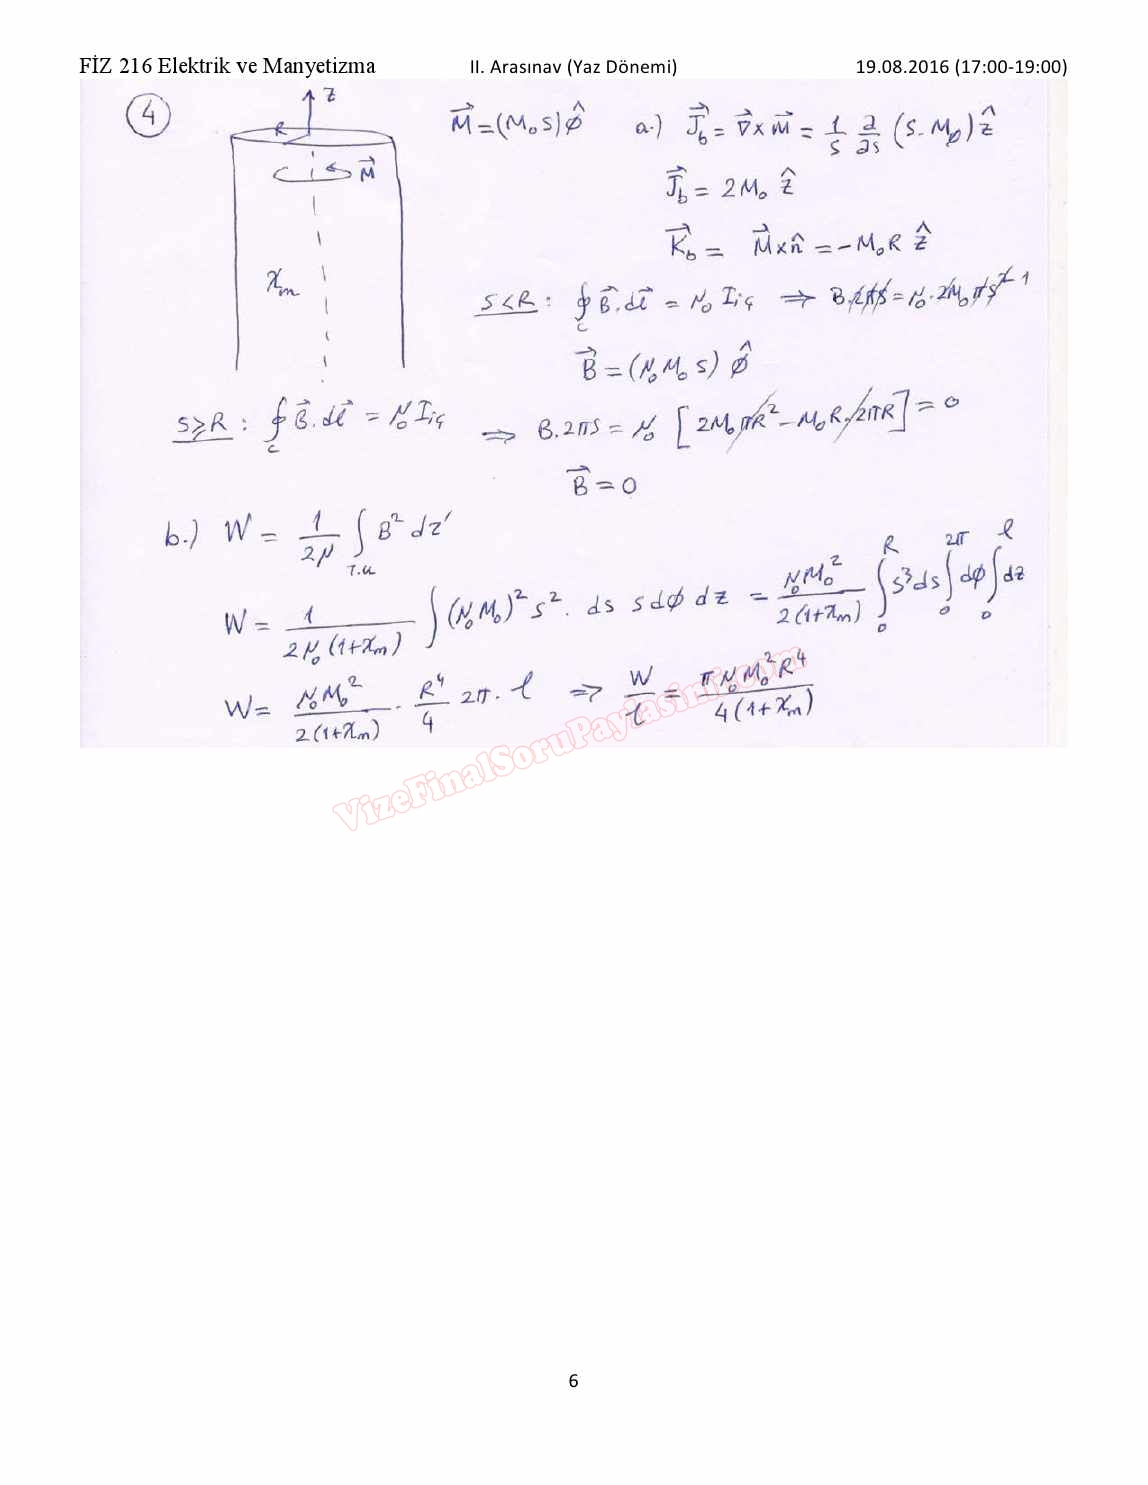 FİZ 216 Elektrik ve Manyetizma II. Arasınav (Yaz Dönemi) 19.08.2016 (17:00-19:00)
4
z
R
M⃗
χm
M⃗ = (M₀s) φ̂ a.) J⃗b = ∇⃗ x M⃗ = 1/s ∂/∂s (s. Mφ) ẑ
J⃗b = 2M₀ ẑ
K⃗b = M⃗ x n̂ = -M₀R ẑ
s<R : ∮c B⃗.dl⃗ = μ₀ Iiç ⇒ B.2πs = μ₀.2M₀πs²
B⃗ = (μ₀M₀s) φ̂
s≥R : ∮c B⃗.dl⃗ = μ₀ Iiç ⇒ B.2πs = μ₀ [2M₀πR² - M₀R.2πR] = 0
B⃗ = 0
b.) W = 1/2μ ∫T.U B² dz'
W = 1/2μ₀(1+χm) ∫(μ₀M₀)² s². ds sdφ dz = μ₀M₀²/2(1+χm) ∫₀ᴿ s³ds ∫₀²π dφ ∫₀ˡ dz
W = μ₀M₀²/2(1+χm) . R⁴/4 2π. l ⇒ W/l = πμ₀M₀²R⁴/4(1+χm)
VizeFinalSoruPaylasimi.com
6